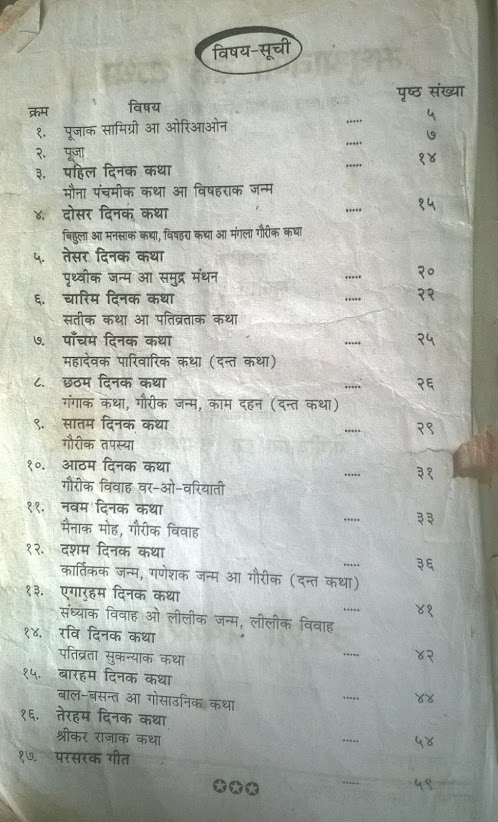 विषय-सूची
क्रम विषय पृष्ठ संख्या
१. पूजाक सामिग्री आ ओरिआओन ..... ५
२. पूजा ..... ७
३. पहिल दिनक कथा ..... १४
मौना पंचमीक कथा आ विषहराक जन्म
४. दोसर दिनक कथा ..... १५
बिहुला आ मनसाक कथा, विषहरा कथा आ मंगला गौरीक कथा
५. तेसर दिनक कथा
पृथ्वीक जन्म आ समुद्र मंथन ..... २०
६. चारिम दिनक कथा ..... २२
सतीक कथा आ पतिव्रताक कथा
७. पाँचम दिनक कथा ..... २५
महादेवक पारिवारिक कथा (दन्त कथा)
८. छठम दिनक कथा ..... २६
गंगाक कथा, गौरीक जन्म, काम दहन (दन्त कथा)
९. सातम दिनक कथा ..... २९
गौरीक तपस्या
१०. आठम दिनक कथा ..... ३१
गौरीक विवाह वर-ओ-वरियाती
११. नवम दिनक कथा ..... ३३
मैनाक मोह, गौरीक विवाह
१२. दशम दिनक कथा ..... ३६
कार्तिकक जन्म, गणेशक जन्म आ गौरीक (दन्त कथा)
१३. एगारहम दिनक कथा ..... ४१
संध्याक विवाह ओ लीलीक जन्म, लीलीक विवाह
१४. रवि दिनक कथा
पतिव्रता सुकन्याक कथा ..... ४२
१५. बारहम दिनक कथा
बाल-बसन्त आ गोसाउनिक कथा ..... ४४
१६. तेरहम दिनक कथा
श्रीकर राजाक कथा ..... ५४
१७. परसरक गीत
..... ५९